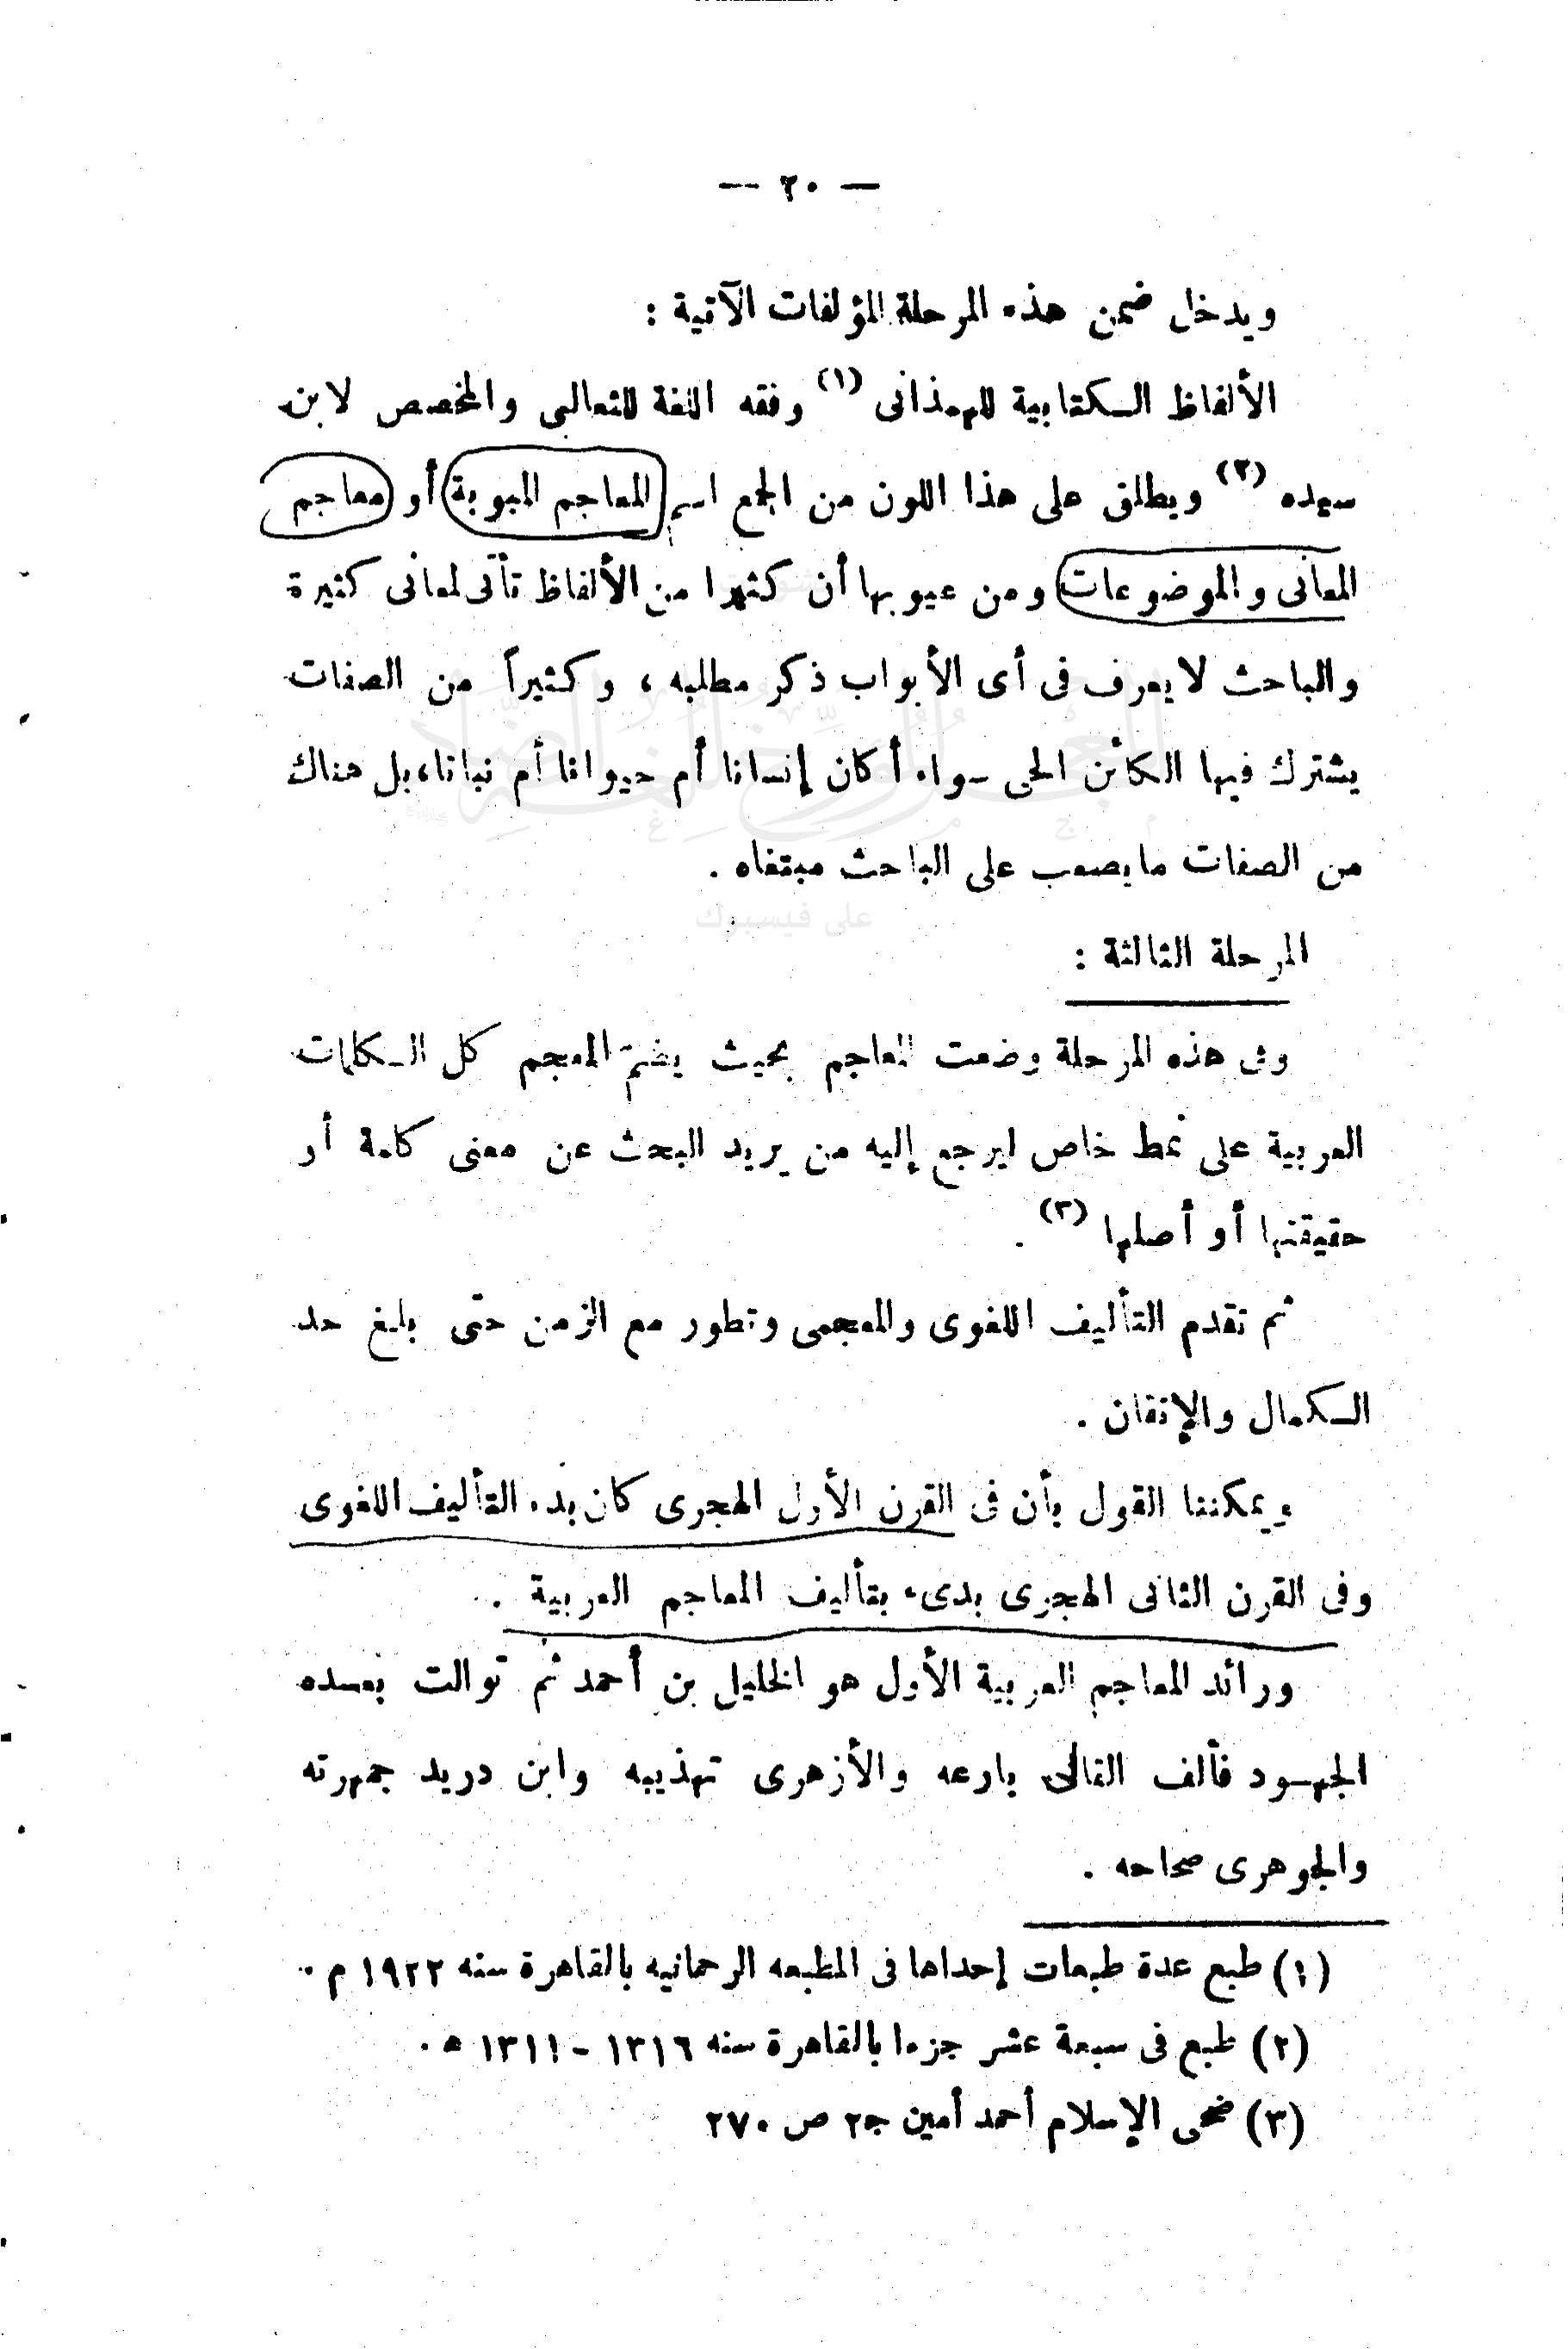 — ٢٠ —
ويدخل ضمن هذه المرحلة المؤلفات الآتية :
الألفاظ الكتابية للهمذانى (١) وفقه اللغة للثعالبى والمخصص لابن
سيده (٢) ويطلق على هذا اللون من الجمع اسم المعاجم المبوبة أو معاجم
المعانى والموضوعات ومن عيوبها أن كثيرا من الألفاظ تأتى لمعانى كثيرة
والباحث لا يعرف فى أى الأبواب ذكر مطلبه ، وكثيراً من الصفات
يشترك فيها الكائن الحى سواء أكان إنسانا أم حيوانا أم نباتا، بل هناك
من الصفات ما يصعب على الباحث مبتغاه .
على فيسبوك
المرحلة الثالثة :
وفى هذه المرحلة وضعت المعاجم بحيث يضم المعجم كل الكلمات
العربية على نمط خاص ليرجع إليه من يريد البحث عن معنى كلمة أو
حقيقتها أو أصلها (٣) .
ثم تقدم التأليف اللغوى والمعجمى وتطور مع الزمن حتى بلغ حد
الكمال والإتقان .
ويمكننا القول بأن فى القرن الأول الهجرى كان بدء التأليف اللغوى
وفى القرن الثانى الهجرى بدىء بتأليف المعاجم العربية .
ورائد المعاجم العربية الأول هو الخليل بن أحمد ثم توالت بعده
الجهود فألف القالى بارعه والأزهرى تهذيبه وابن دريد جمهرته
والجوهرى صحاحه .
(١) طبع عدة طبعات إحداها فى المطبعه الرحمانيه بالقاهرة سنه ١٩٢٢ م .
(٢) طبع فى سبعة عشر جزءا بالقاهرة سنه ١٣١٦ - ١٣١١ ه .
(٣) ضحى الإسلام أحمد أمين ج٢ ص ٢٧٠